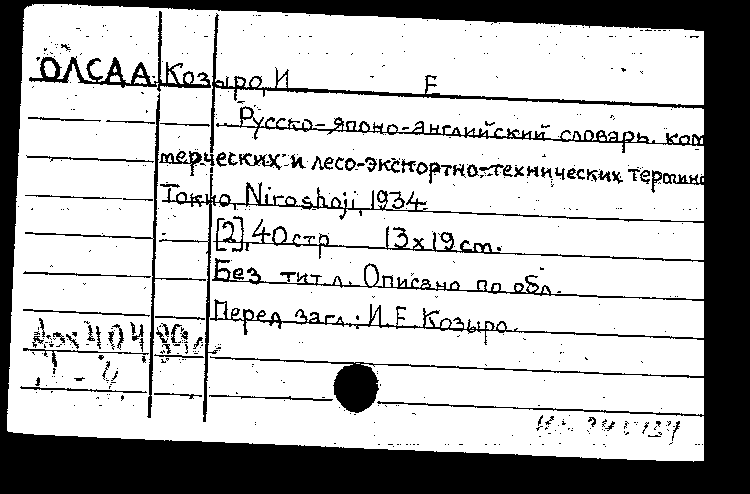 ОЛСАА Козыро, И Е
Русско-японо-английский словарь ком
мерческих и лесо-экспортно-технических термино
Токио, Niroshoji, 1934
[2], 40 стр 13 x 19 cm.
Без тит. л. Описано по обл.
Перед загл.: И. Е. Козыро.